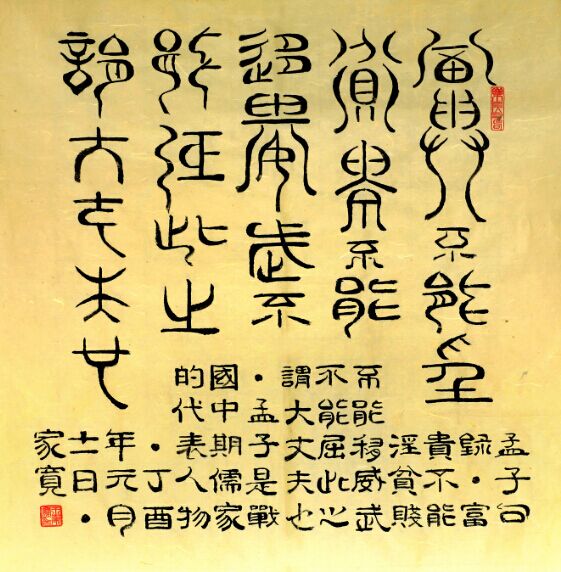 富貴不能淫
貧賤不能
移威武不
能屈此之
謂大丈夫也
孟子曰
錄·富
貴不能
淫貧賤
不能移威武
不能屈此之
謂大丈夫也
·孟子是戰
國中期儒家
的代表人物
·丁酉
年元月
日·
家寬